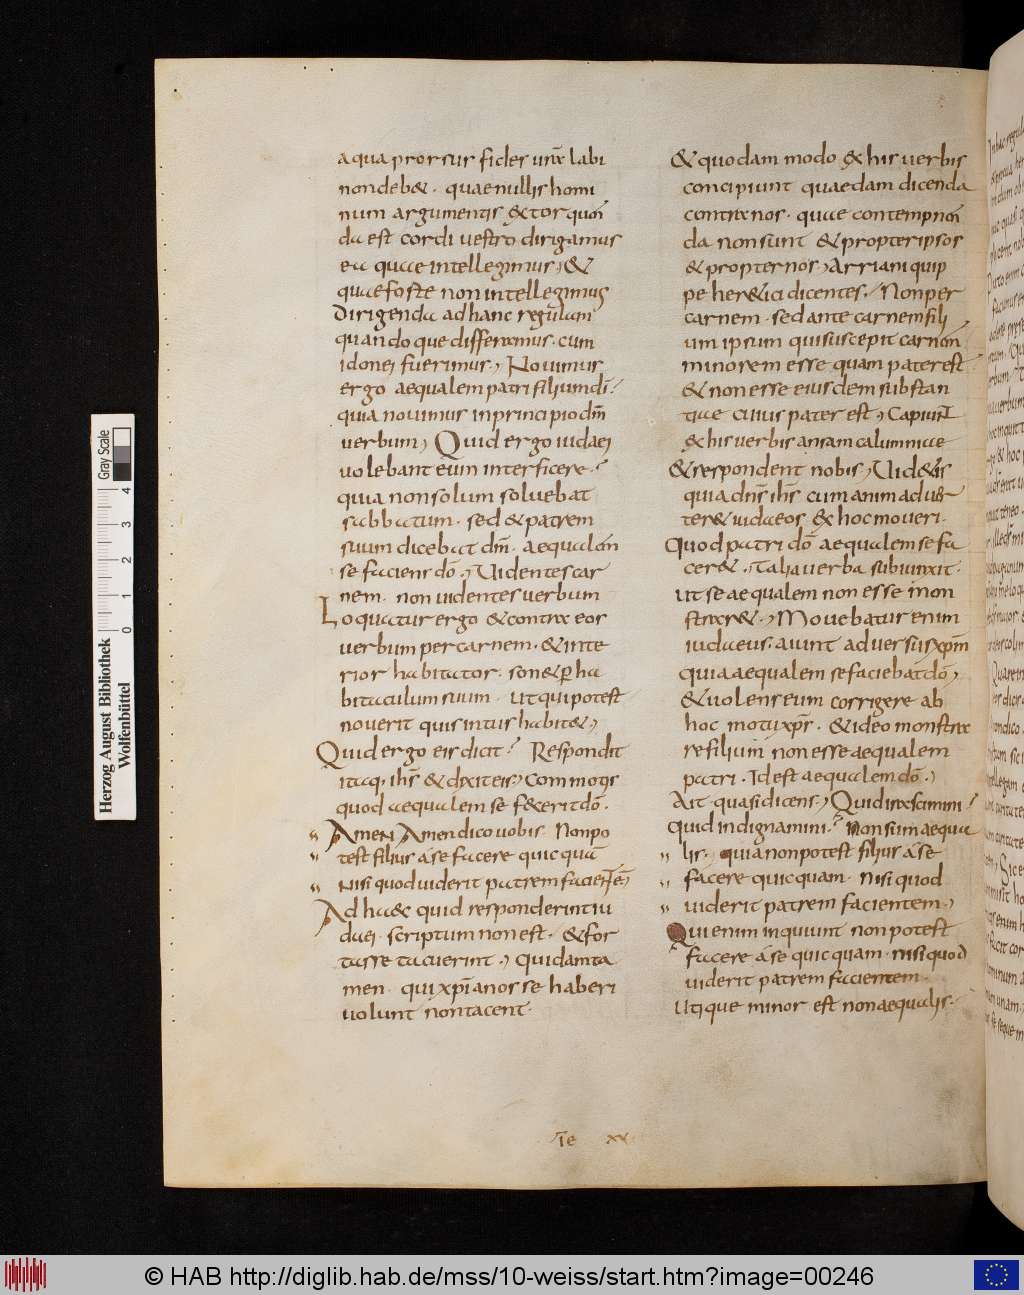 a qua prorsus fides vrā labi
non deb& · quae nullis homi
num argumentis &torquen
da est cordi vestro dirigamus
ea quae intellegimus; &
quae forte non intellegimus
Dirigenda ad hanc regulam
quandoque differamus · cum
idonei fuerimus; Novimus
ergo aequalem patri filium dī·
quia novimus in principio dm̄
verbum; Quid ergo iudaei
volebant eum interficere·
quia non solum soluebat
sabbatum · sed & patrem
suum dicebat dm̄ · aequalem
se faciens dō; Videntes car
nem · non videntes verbum
Loquatur ergo & contra eos
verbum per carnem · & inte
rior habitator · son& p̱ ha
bitaculum suum · ut qui potest
noverit quis intus habit&;
Quid ergo eis dicit? Respondit
itaq; ihs̄ & dixit eis; Commotis
quod aequalem se fecerit dō·
Amen Amen dico vobis · Non po
test filius á se facere quicquā
Nisi quod viderit patrem facientē;
Ad haec quid responderint iu
daei · scriptum non est · & for
tasse tacuerint; Quidam ta
men · qui xp̄ianos se haberi
volunt non tacent·
& quodam modo & his verbis
concipiunt quaedam dicenda
contra nos · quae contempnen
da non sunt & propter ipsos
& propter nos; Arriani quip
pe her&ici dicentes · Non per
carnem · sed ante carnem fili
um ipsum qui suscepit carnem
minorem esse quam pater est
& non esse eiusdem substan
tiae cuius pater est; Capiunt
& his verbis ansam calumniae
& respondent nobis; Vid&is
quia dn̄s ihs̄ cum animadver
ter& iudaeos & hoc moveri·
Quod patri dō aequalem se fa
cer&; Talia verba subiunxit·
ut se aequalem non esse mon
strar&; Movebatur enim
iudaeus · aiunt adversus xpm̄
quia aequalem se faciebat dō;
& volens eum corrigere ab
hoc motu xp̄s · & ideo monstrare
se filium non esse aequalem
patri · Id est aequalem dō;
Ait · quasi dicens; Quid irascimini?
Quid indignamini? Non sum aequa
lis; quia non potest filius á se
facere quicquam · Nisi quod
viderit patrem facientem;
Qui enim inquiunt non potest
facere á se quicquam · nisi quod
viderit patrem facientem·
Utique minor est non aequalis·
xx
Herzog August Bibliothek
Wolfenbüttel
Gray Scale
0 1 2 3 4
© HAB http://diglib.hab.de/mss/10-weiss/start.htm?image=00246